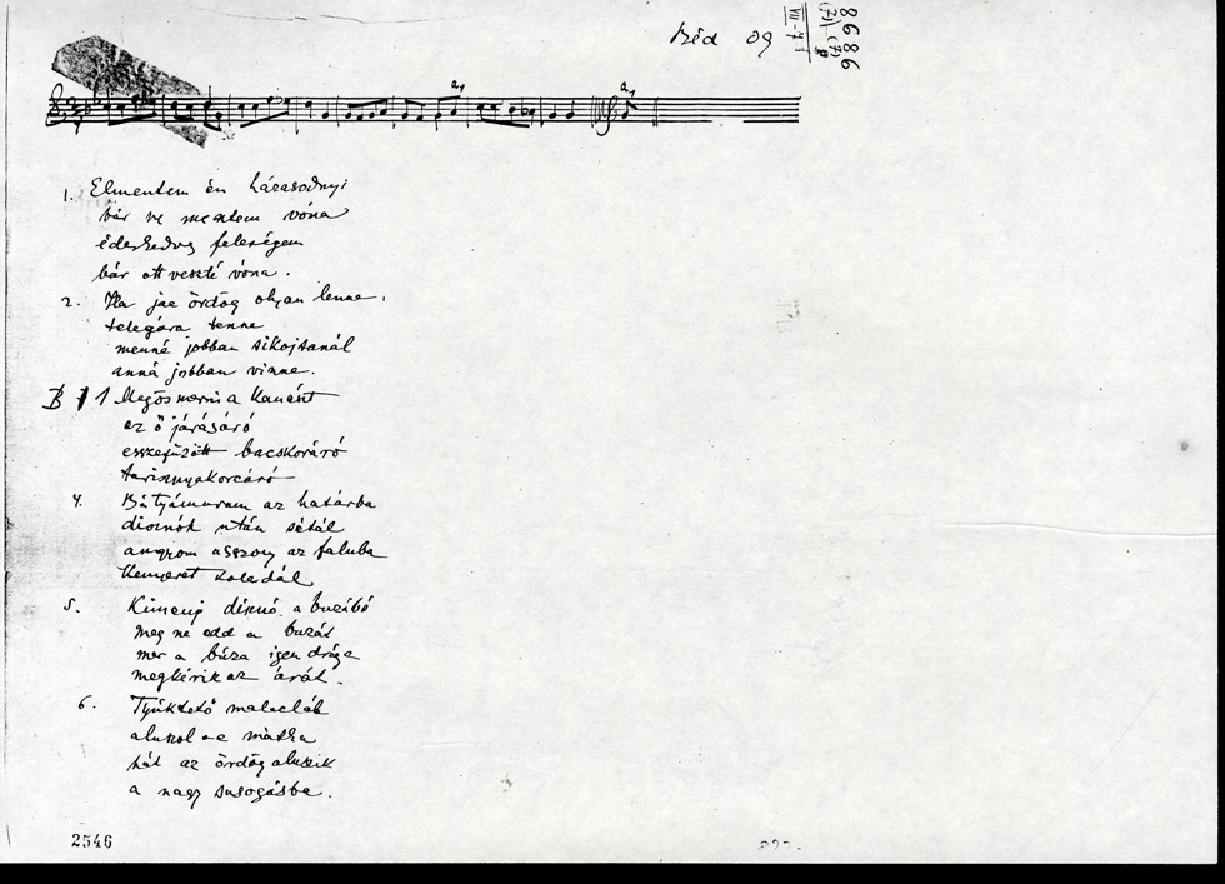 8986
09
1. Elmentem én házasodnyi
bár ne mentem vóna
édeskedves feleségem
bár ott veszté vóna.
2. Ha jaz ördög olyan lenne,
telegára tenne
menné jobban sikojtanál
anná jobban vinne.
B 1 Megösmerni a Kanászt
az ő járásáró
esszefűzött bacskoráró
tarisnyakorcáró
4. Bátyámuram az határba
disznók után sétál
asszony az faluba
Kenyeret koledál
5. Kimenj disznó a buzábó
meg ne edd a buzát
mer a búza igen drága
megkérik az árát.
6. Tyúktető malacláb
aluszol-e mátka
hát az ördög aluszik
a nagy susogásba.
2546